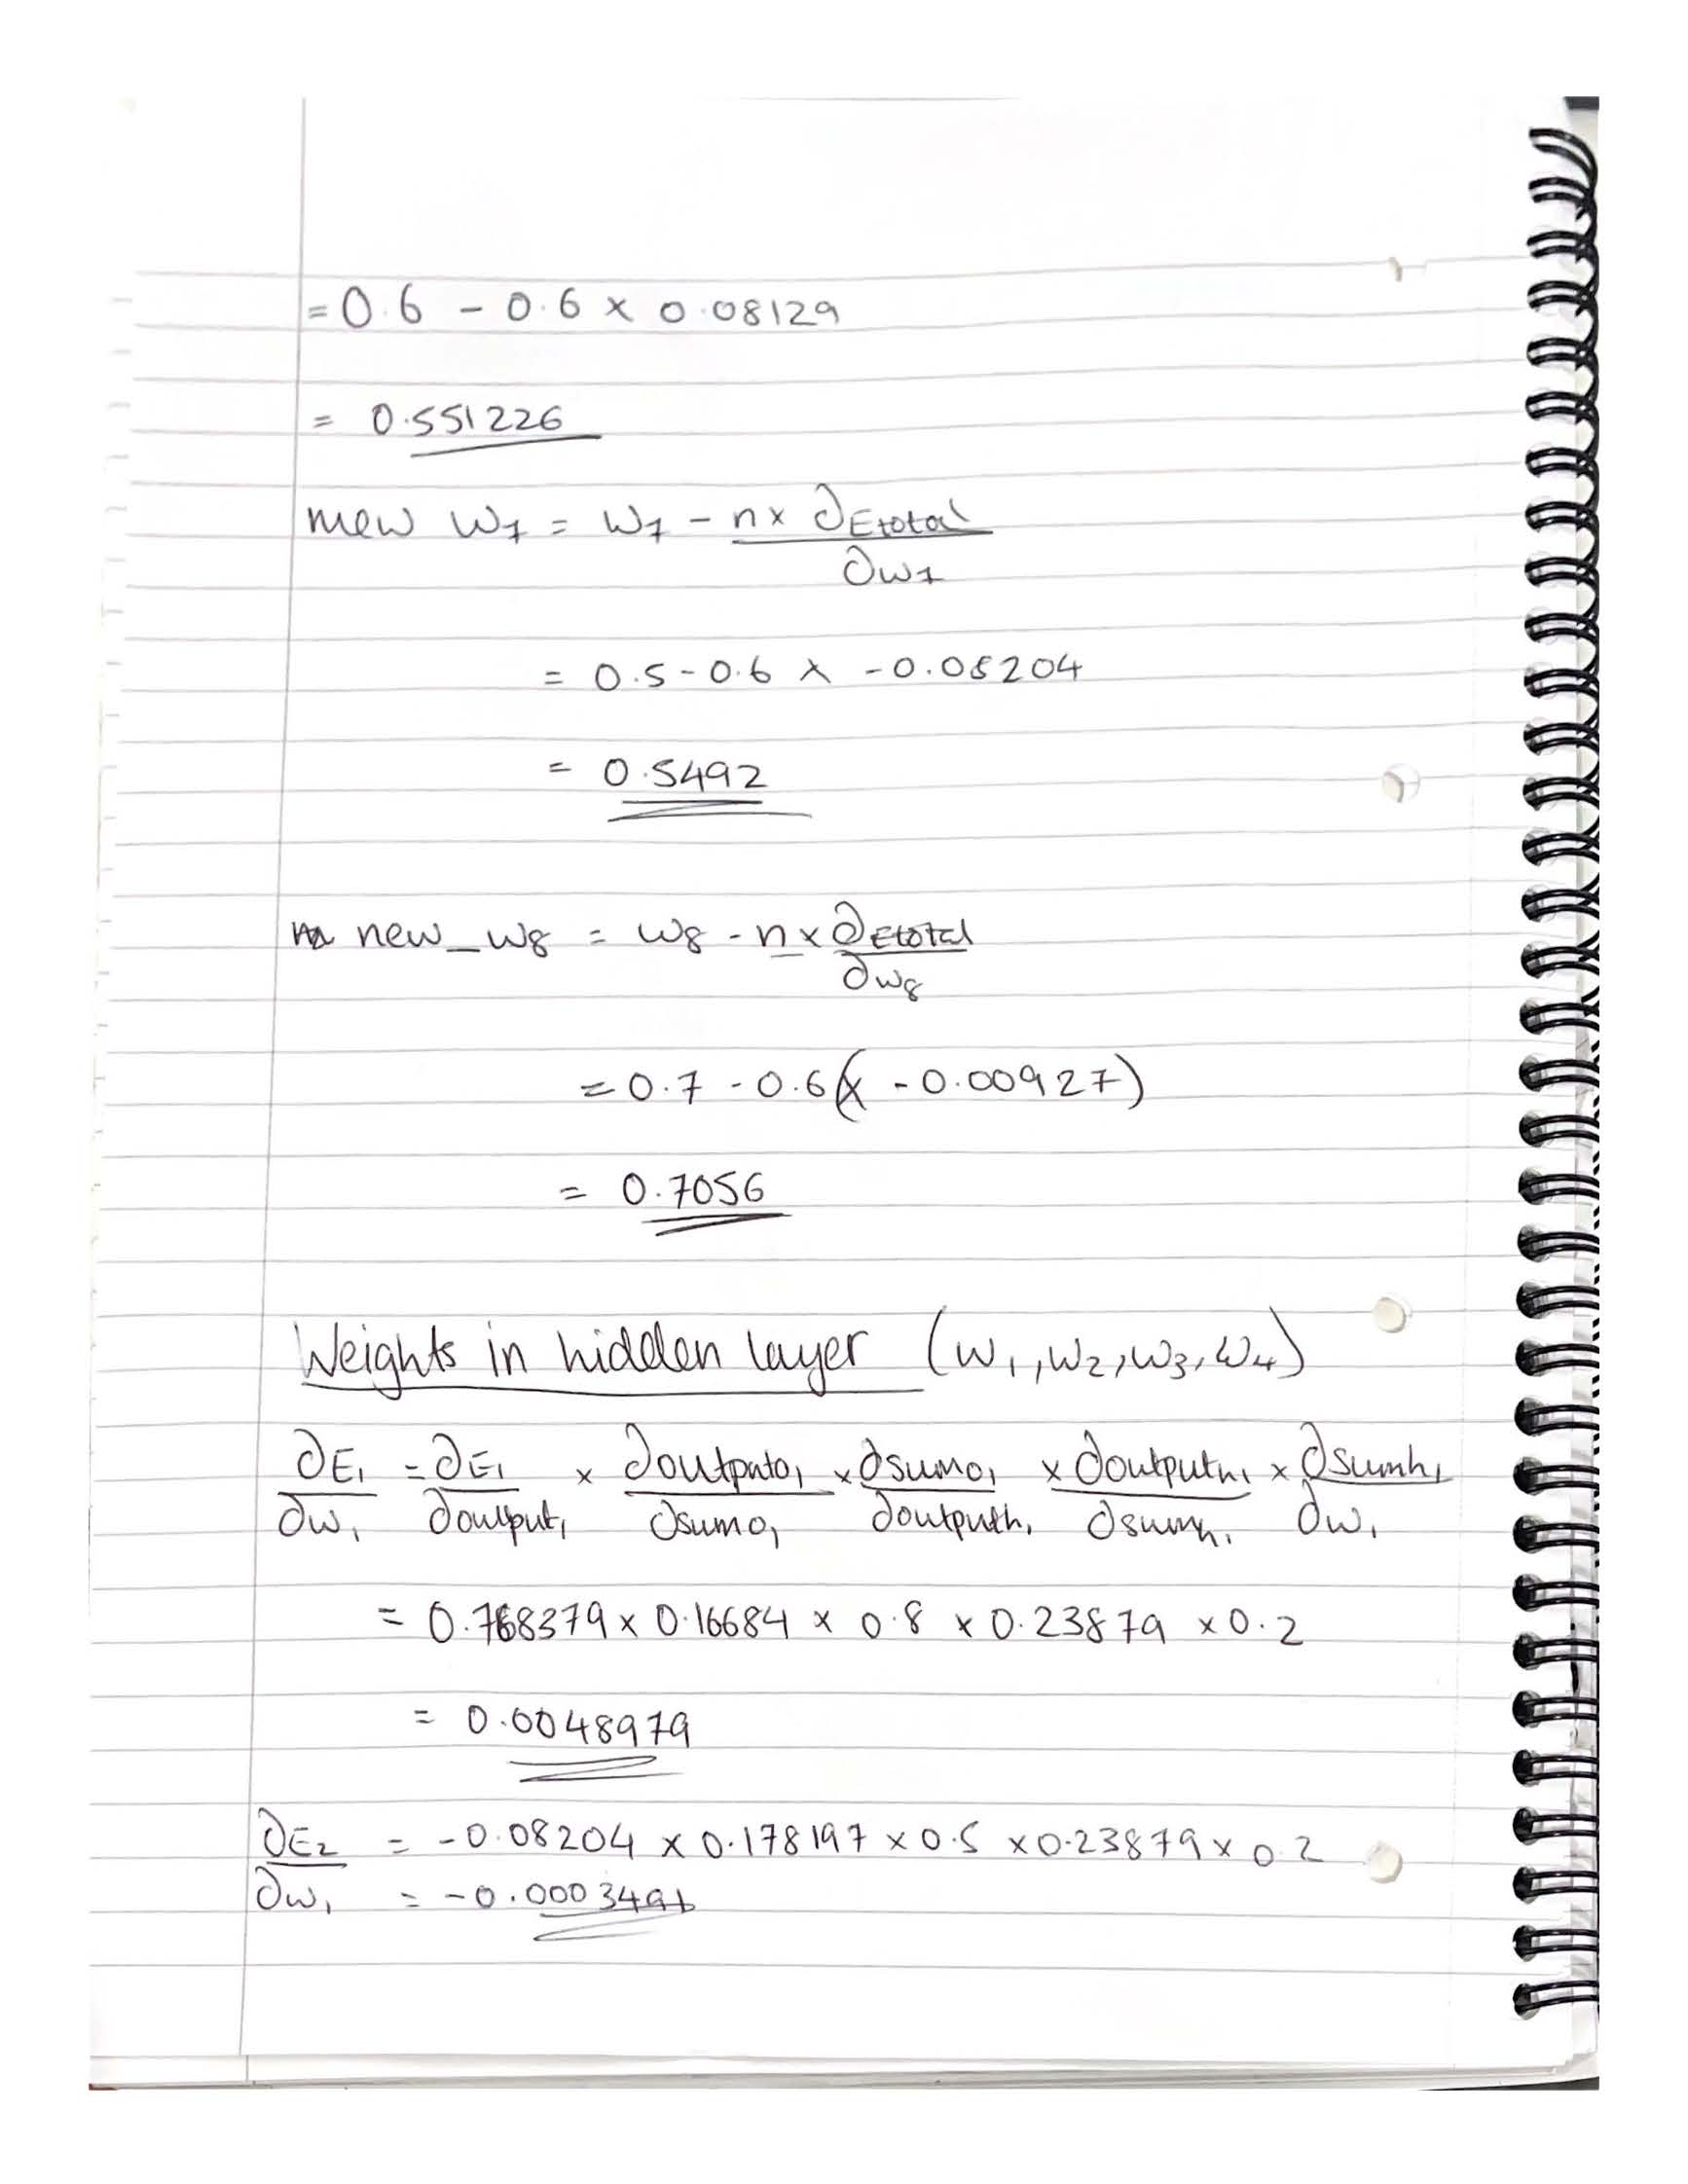 = 0.6 - 0.6 × 0.08129
= 0.551226
new w7 = w7 - n × ∂Etotal
∂w7
= 0.5 - 0.6 × -0.08204
= 0.5492
new_w8 = w8 - n × ∂Etotal
∂w8
= 0.7 - 0.6(× -0.00927)
= 0.7056
Weights in hidden layer (w1, w2, w3, w4)
∂E1 = ∂E1 × ∂outputo1 × ∂sumo1 × ∂outputh1 × ∂sumh1
∂w1 ∂output1 ∂sumo1 ∂outputh1 ∂sumh1 ∂w1
= 0.768379 × 0.16684 × 0.8 × 0.23879 × 0.2
= 0.0048979
∂E2 = -0.08204 × 0.178197 × 0.5 × 0.23879 × 0.2
∂w1 = -0.0003491